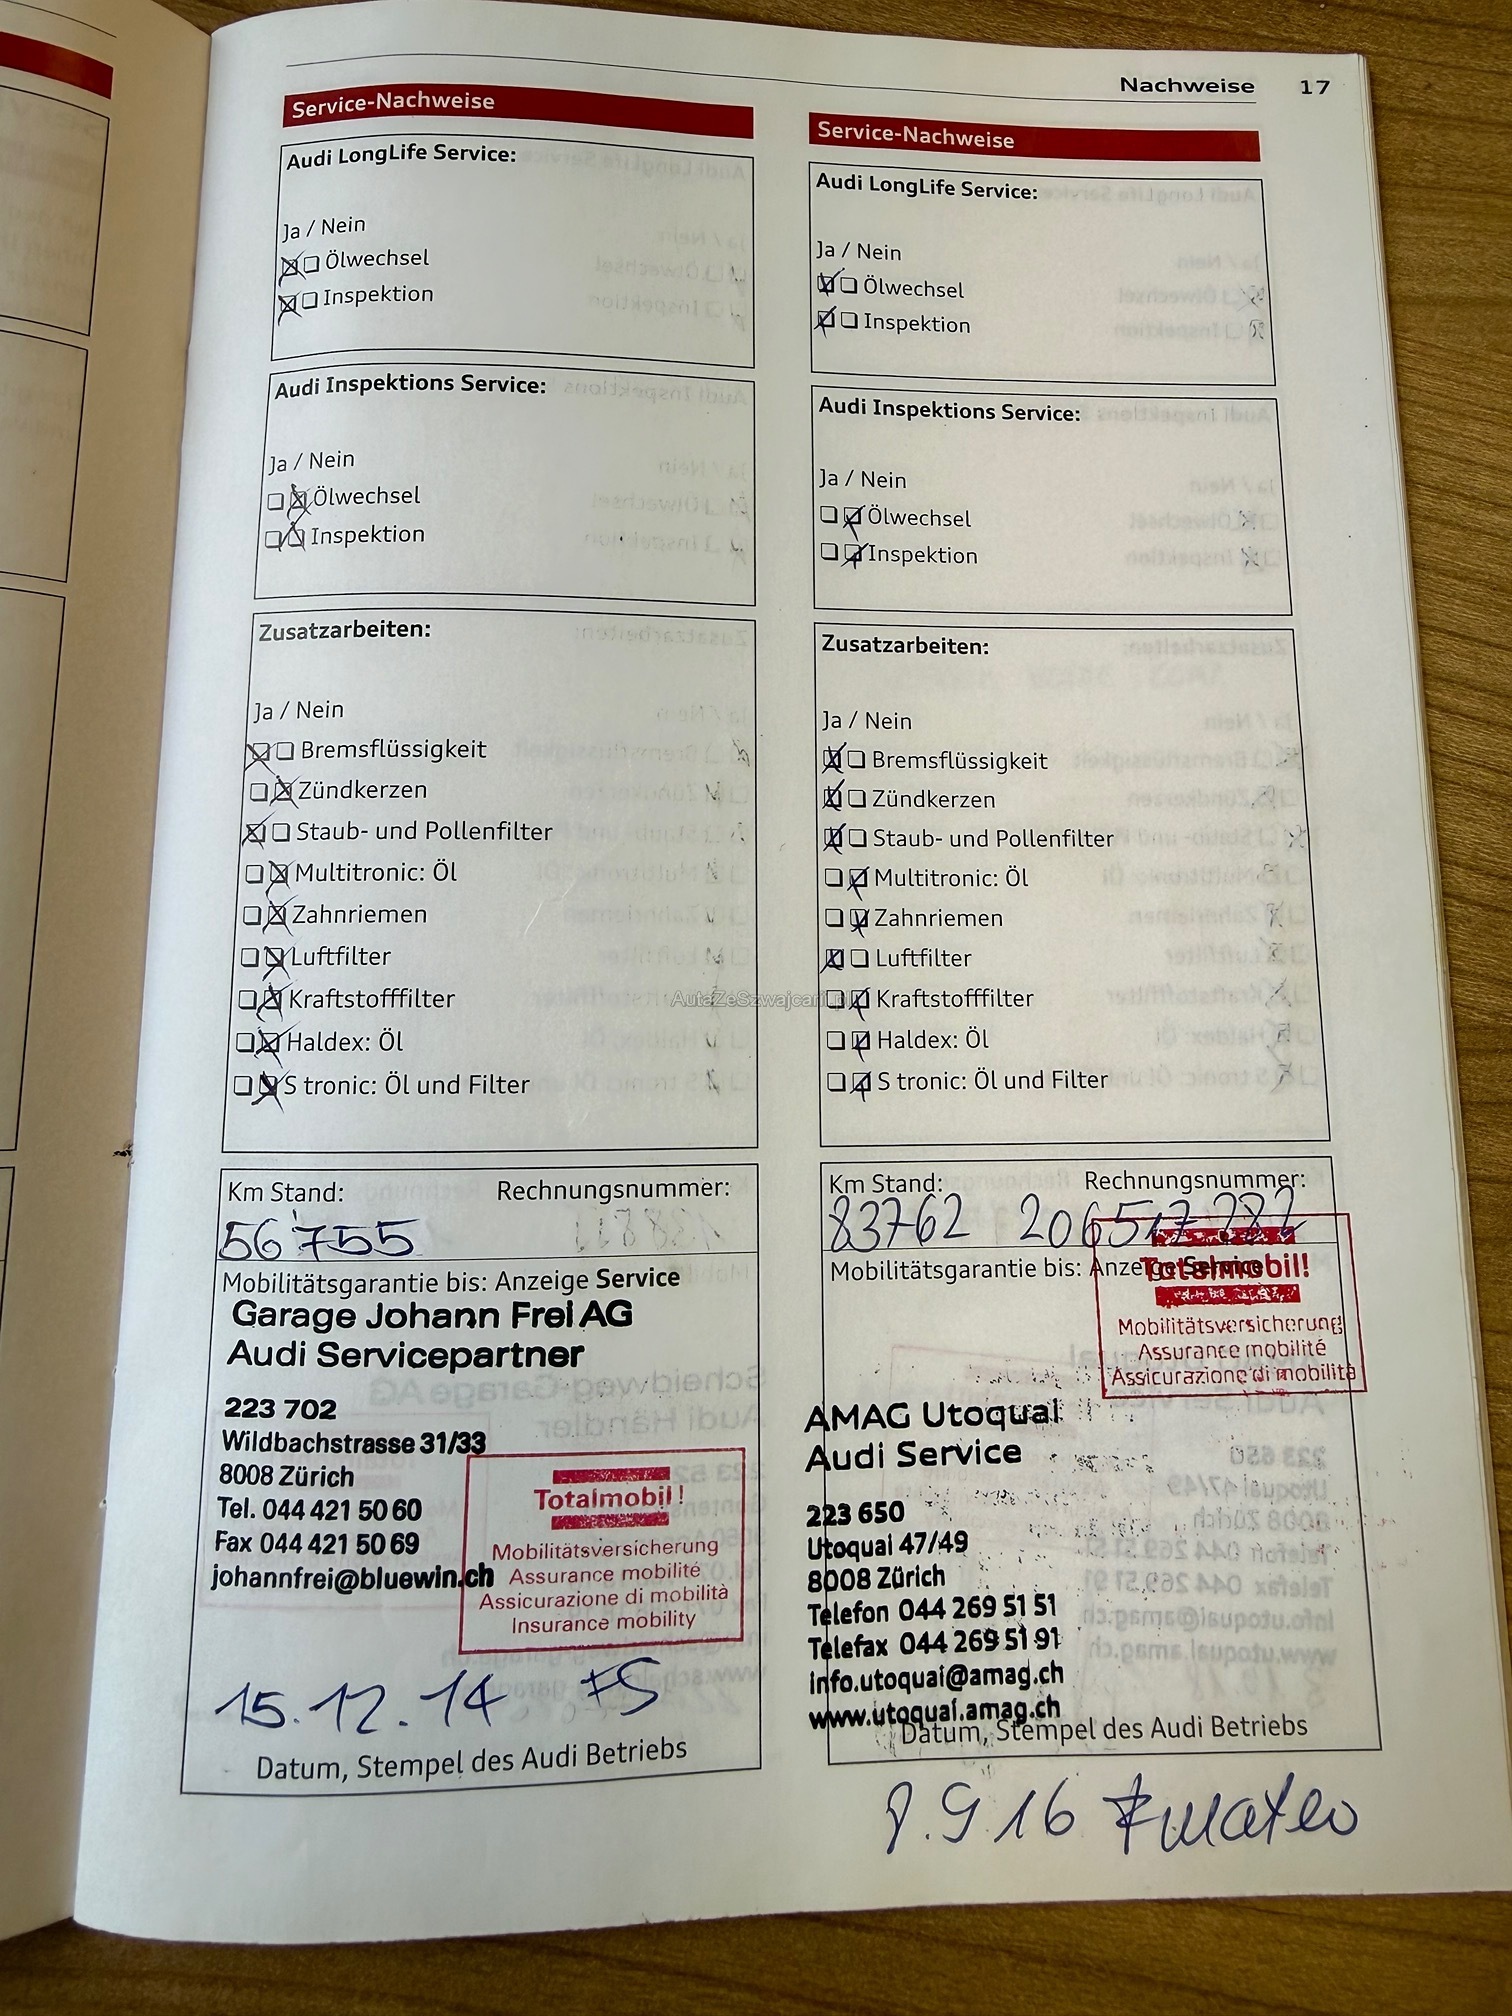 Nachweise 17
Service-Nachweise
Audi LongLife Service:
Ja / Nein
Ölwechsel
Inspektion
Audi Inspektions Service:
Ja / Nein
Ölwechsel
Inspektion
Zusatzarbeiten:
Ja / Nein
Bremsflüssigkeit
Zündkerzen
Staub- und Pollenfilter
Multitronic: Öl
Zahnriemen
Luftfilter
Kraftstofffilter
Haldex: Öl
S tronic: Öl und Filter
Km Stand: Rechnungsnummer:
56755
Mobilitätsgarantie bis: Anzeige Service
Garage Johann Frei AG
Audi Servicepartner
223 702
Wildbachstrasse 31/33
8008 Zürich
Tel. 044 421 50 60
Fax 044 421 50 69
johannfrei@bluewin.ch
Totalmobil!
Mobilitätsversicherung
Assurance mobilité
Assicurazione di mobilità
Insurance mobility
15.12.14 FS
Datum, Stempel des Audi Betriebs
Service-Nachweise
Audi LongLife Service:
Ja / Nein
Ölwechsel
Inspektion
Audi Inspektions Service:
Ja / Nein
Ölwechsel
Inspektion
Zusatzarbeiten:
Ja / Nein
Bremsflüssigkeit
Zündkerzen
Staub- und Pollenfilter
Multitronic: Öl
Zahnriemen
Luftfilter
Kraftstofffilter
Haldex: Öl
S tronic: Öl und Filter
Km Stand: Rechnungsnummer:
83762 206517282
Mobilitätsgarantie bis: Anzeige Service
Totalmobil!
Mobilitätsversicherung
Assurance mobilité
Assicurazione di mobilità
AMAG Utoquai
Audi Service
223 650
Utoquai 47/49
8008 Zürich
Telefon 044 269 51 51
Telefax 044 269 51 91
info.utoquai@amag.ch
www.utoquai.amag.ch
Datum, Stempel des Audi Betriebs
8.9.16
AutaZeSzwajcarii.pl